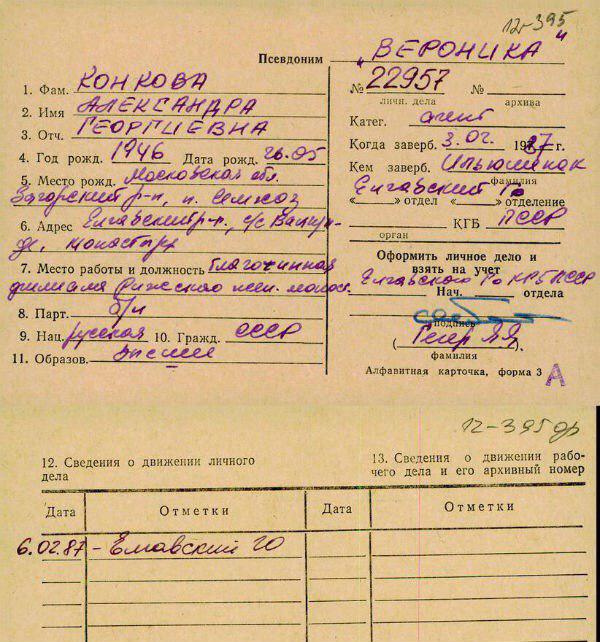 12-395
Псевдоним „ВЕРОНИКА"
1. Фам. КОНКОВА
2. Имя АЛЕКСАНДРА
3. Отч. ГЕОРГИЕВНА
4. Год рожд. 1946 Дата рожд. 26.05
5. Место рожд. Московская обл.
Загорский р-н, п. Семхоз
6. Адрес Елгавский р-н, с/с
монастырь
7. Место работы и должность благочинная
филиала Рижского жен. монас.
8. Парт. б/п
9. Нац. русская 10. Гражд. СССР
11. Образов. высшее
№ 22957 №
личн. дела архива
Катег. агент
Когда заверб. 3.02. 1987 г.
Кем заверб.
фамилия
Елгавский ГО
«___» отдел «___» отделение
КГБ ЛССР
орган
Оформить личное дело и
взять на учет
Елгавского ГО КГБ ЛССР
Нач. отдела
подпись
(Гегер Я.Я.)
фамилия
Алфавитная карточка, форма 3 А
12-395др
12. Сведения о движении личного
дела
13. Сведения о движении рабо-
чего дела и его архивный номер
Дата Отметки Дата Отметки
6.02.87 - Елгавский ГО